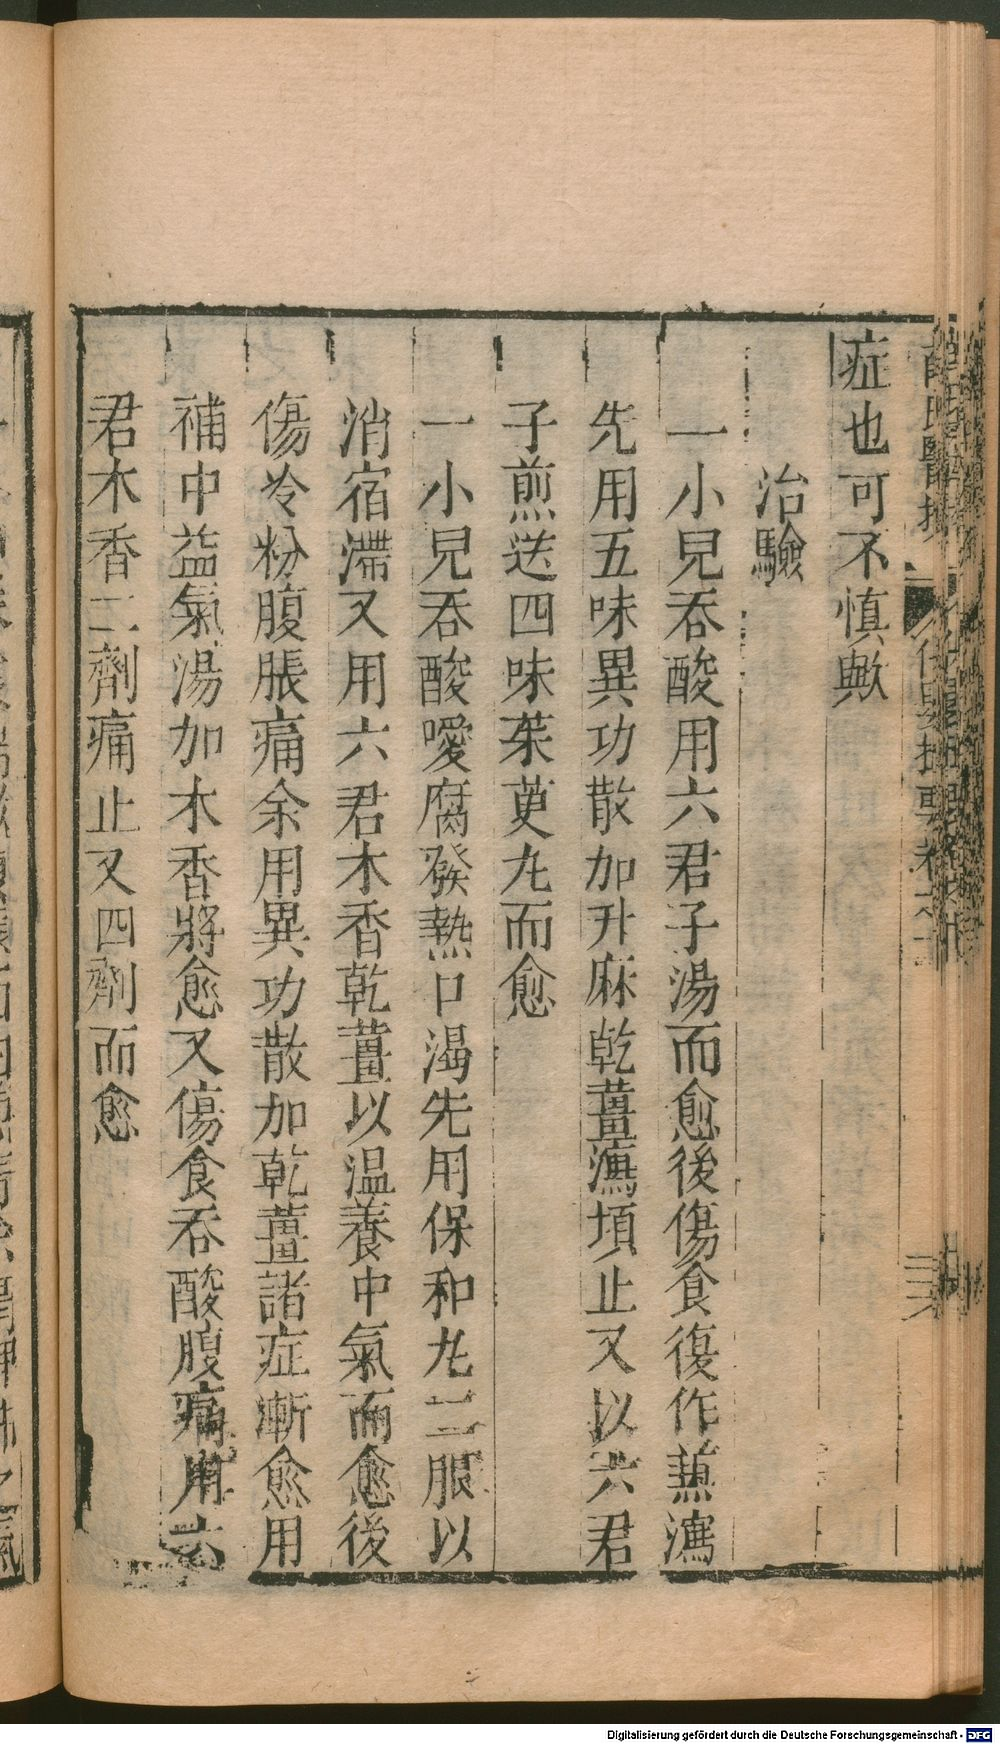 症也可不慎歟
治驗
一小兒吞酸用六君子湯而愈後傷食復作蒹瀉
先用五味異功散加升麻乾薑瀉頓止又以六君
子煎送四味茱萸丸而愈
一小兒吞酸噯腐發熱口渴先用保和丸二服以
消宿滯又用六君木香乾薑以温養中氣而愈後
傷冷粉腹脹痛余用異功散加乾薑諸症漸愈用
補中益氣湯加木香將愈又傷食吞酸腹痛用六
君木香二劑痛止又四劑而愈
Digitalisierung gefördert durch die Deutsche Forschungsgemeinschaft - DFG